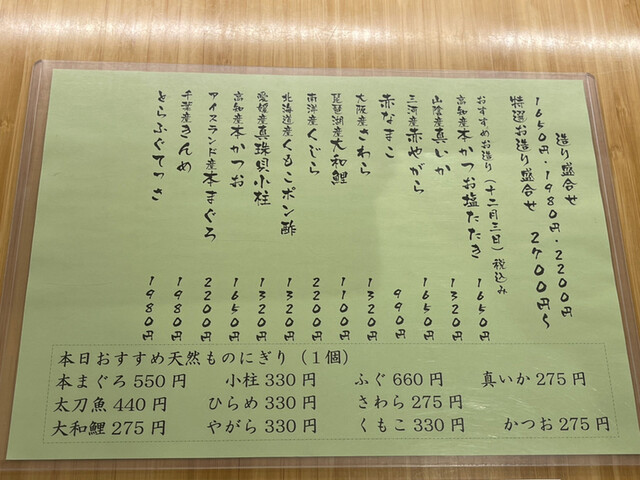 造り盛合せ
1650円・1980円・2200円
特選お造り盛合せ 2700円～
おすすめお造り(十二月三日)税込み
高知産本かつお塩たたき 1650円
山陰産真いか 1320円
三河産赤やがら 1650円
赤なまこ 990円
大阪産さわら 1320円
琵琶湖産大和鯉 1100円
南洋産くじら 2200円
北海道産くもこポン酢 1320円
愛媛産真珠貝小柱 1320円
高知産本かつお 1650円
アイスランド産本まぐろ 2200円
千葉産きんめ 1980円
とらふぐてっさ 1980円
本日おすすめ天然ものにぎり(1個)
本まぐろ550円 小柱330円 ふぐ660円 真いか275円
太刀魚440円 ひらめ330円 さわら275円
大和鯉275円 やがら330円 くもこ330円 かつお275円